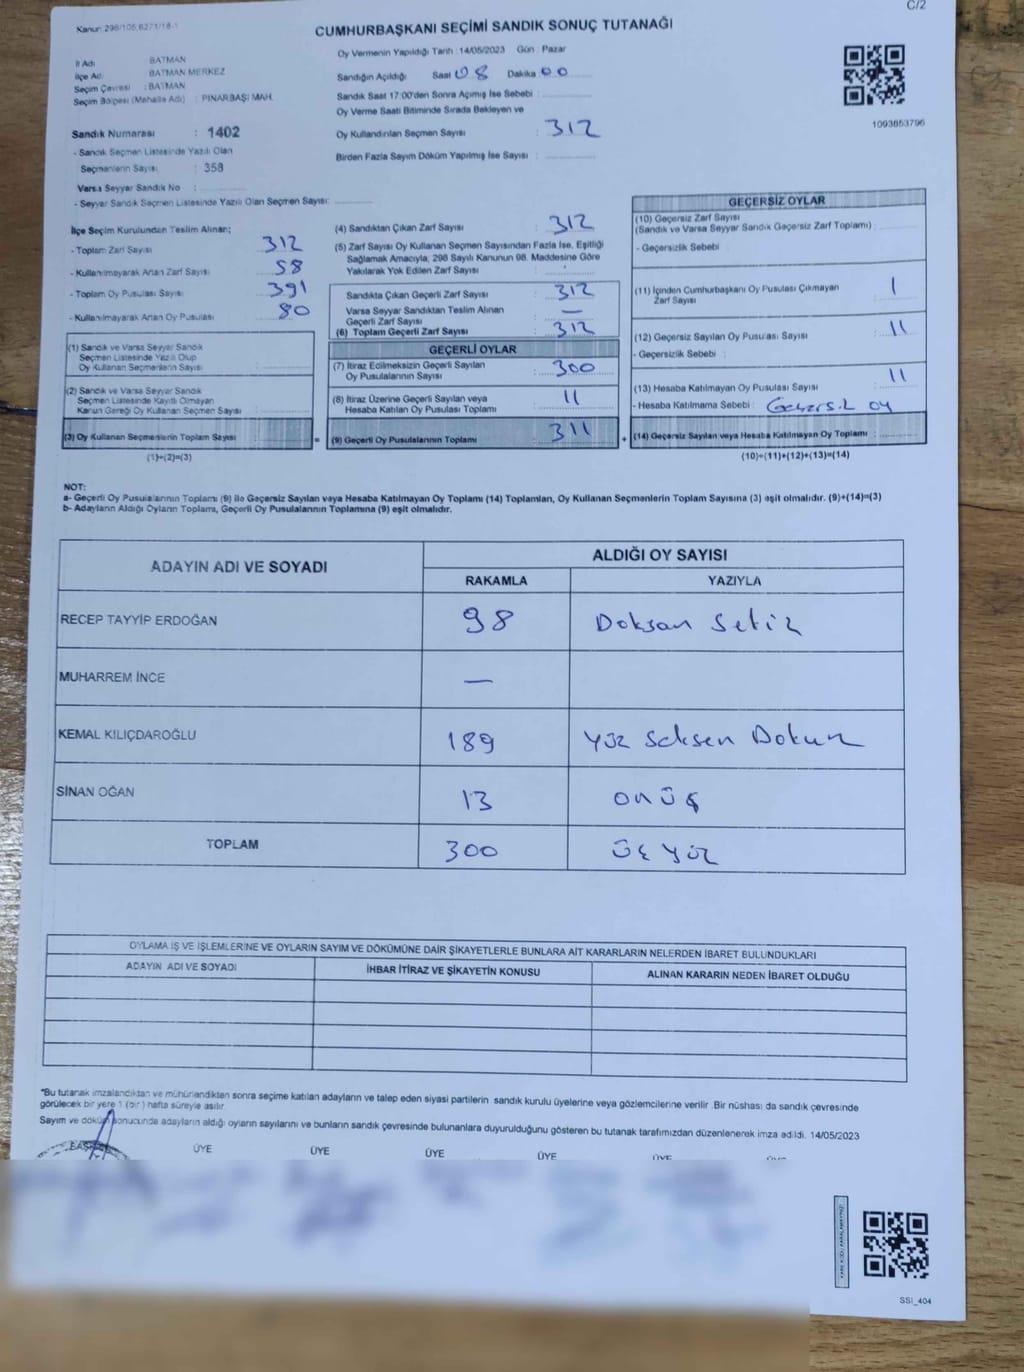 C/2
Kanun: 298/105,6271/18-1
CUMHURBAŞKANI SEÇİMİ SANDIK SONUÇ TUTANAĞI
İl Adı BATMAN
İlçe Adı BATMAN MERKEZ
Seçim Çevresi : BATMAN
Seçim Bölgesi (Mahalle Adı) : PINARBAŞI MAH.
Sandık Numarası : 1402
- Sandık Seçmen Listesinde Yazılı Olan
Seçmenlerin Sayısı : 358
Varsa Seyyar Sandık No :
- Seyyar Sandık Seçmen Listesinde Yazılı Olan Seçmen Sayısı:
Oy Vermenin Yapıldığı Tarih :14/05/2023 Gün : Pazar
Sandığın Açıldığı Saat 08 Dakika 00
Sandık Saat 17:00'den Sonra Açımış İse Sebebi :
Oy Verme Saati Bitiminde Sırada Bekleyen ve
Oy Kullandırılan Seçmen Sayısı : 312
Birden Fazla Sayım Döküm Yapılmış İse Sayısı :
1093853796
İlçe Seçim Kurulundan Teslim Alınan;
- Toplam Zarf Sayısı 312
- Kullanılmayarak Artan Zarf Sayısı 58
- Toplam Oy Pusulası Sayısı 391
- Kullanılmayarak Artan Oy Pusulası 80
(1) Sandık ve Varsa Seyyar Sandık
Seçmen Listesinde Yazılı Olup
Oy Kullanan Seçmenlerin Sayısı :
(2) Sandık ve Varsa Seyyar Sandık
Seçmen Listesinde Kayıtlı Olmayan
Kanun Gereği Oy Kullanan Seçmen Sayısı :
(3) Oy Kullanan Seçmenlerin Toplam Sayısı :
(1)+(2)=(3)
(4) Sandıktan Çıkan Zarf Sayısı : 312
(5) Zarf Sayısı Oy Kullanan Seçmen Sayısından Fazla İse, Eşitliği
Sağlamak Amacıyla, 298 Sayılı Kanunun 98. Maddesine Göre
Yakılarak Yok Edilen Zarf Sayısı :
Sandıkta Çıkan Geçerli Zarf Sayısı : 312
Varsa Seyyar Sandıktan Teslim Alınan
Geçerli Zarf Sayısı : —
(6) Toplam Geçerli Zarf Sayısı : 312
GEÇERLİ OYLAR
(7) İtiraz Edilmeksizin Geçerli Sayılan
Oy Pusulalarının Sayısı : 300
(8) İtiraz Üzerine Geçerli Sayılan veya
Hesaba Katılan Oy Pusulası Toplamı : 11
= (9) Geçerli Oy Pusulalarının Toplamı : 311
GEÇERSİZ OYLAR
(10) Geçersiz Zarf Sayısı
(Sandık ve Varsa Seyyar Sandık Geçersiz Zarf Toplamı) :
- Geçersizlik Sebebi :
(11) İçinden Cumhurbaşkanı Oy Pusulası Çıkmayan
Zarf Sayısı : 1
(12) Geçersiz Sayılan Oy Pusulası Sayısı : 11
- Geçersizlik Sebebi :
(13) Hesaba Katılmayan Oy Pusulası Sayısı : 11
- Hesaba Katılmama Sebebi : Geçersiz oy
+ (14) Geçersiz Sayılan veya Hesaba Katılmayan Oy Toplamı :
(10)+(11)+(12)+(13)=(14)
NOT:
a- Geçerli Oy Pusulalarının Toplamı (9) ile Geçersiz Sayılan veya Hesaba Katılmayan Oy Toplamı (14) Toplamları, Oy Kullanan Seçmenlerin Toplam Sayısına (3) eşit olmalıdır. (9)+(14)=(3)
b- Adayların Aldığı Oyların Toplamı, Geçerli Oy Pusulalarının Toplamına (9) eşit olmalıdır.
ADAYIN ADI VE SOYADI
ALDIĞI OY SAYISI
RAKAMLA YAZIYLA
RECEP TAYYİP ERDOĞAN 98 Doksan Sekiz
MUHARREM İNCE —
KEMAL KILIÇDAROĞLU 189 yüz seksen Dokuz
SİNAN OĞAN 13 on üç
TOPLAM 300 üç yüz
OYLAMA İŞ VE İŞLEMLERİNE VE OYLARIN SAYIM VE DÖKÜMÜNE DAİR ŞİKAYETLERLE BUNLARA AİT KARARLARIN NELERDEN İBARET BULUNDUKLARI
ADAYIN ADI VE SOYADI İHBAR İTİRAZ VE ŞİKAYETİN KONUSU ALINAN KARARIN NEDEN İBARET OLDUĞU
*Bu tutanak imzalandıktan ve mühürlendikten sonra seçime katılan adayların ve talep eden siyasi partilerin sandık kurulu üyelerine veya gözlemcilerine verilir. Bir nüshası da sandık çevresinde
görülecek bir yere 1 (bir) hafta süreyle asılır.
Sayım ve döküm sonucunda adayların aldığı oyların sayılarını ve bunların sandık çevresinde bulunanlara duyurulduğunu gösteren bu tutanak tarafımızdan düzenlenerek imza edildi. 14/05/2023
ÜYE ÜYE ÜYE ÜYE ÜYE
SSI_404